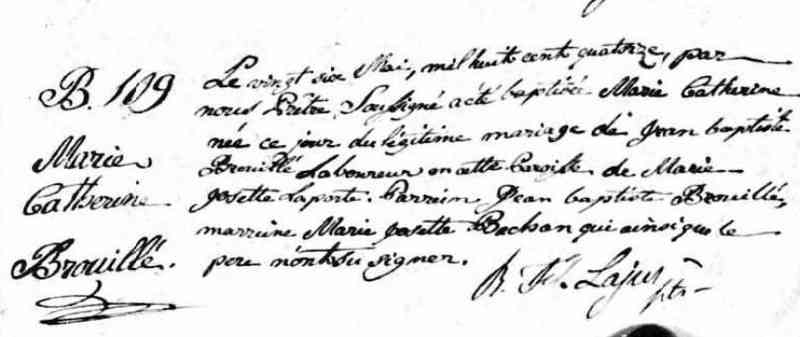 B. 109
Marie
Catherine
Brouillé.
Le vingt six Mai, mil huit cent quatorze, par
nous Prêtre Soussigné a été baptisée Marie Catherine
née ce jour du légitime mariage de Jean baptiste
Brouillé Laboureur en cette Paroisse de Marie
Josette Laporte. Parrain Jean baptiste Brouillé,
marraine Marie Josette Bachan qui ainsi que le
pere n'ont su signer.
Lajus ptr